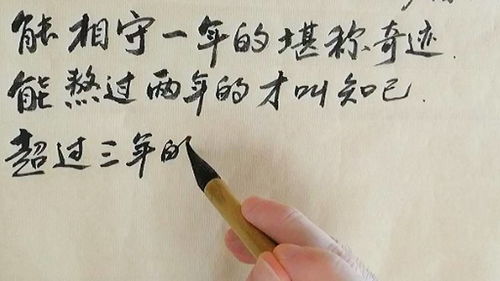 能相守一年的堪称奇迹.
能熬过两年的才叫知己.
超过三年的